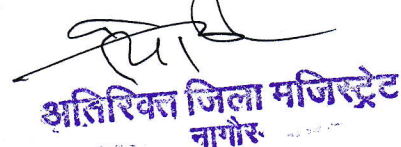 अतिरिक्त जिला मजिस्ट्रेट
नागौर